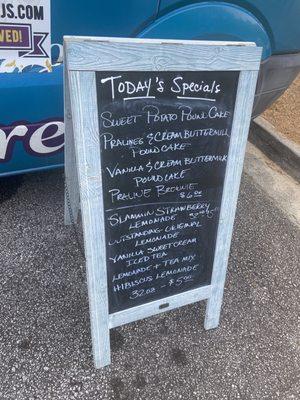 JS.COM
VED!
re
TODAY'S SPECIALS
SWEET POTATO POUND CAKE
PRALINE & CREAM BUTTERMILK
POUND CAKE
VANILLA & CREAM BUTTERMILK
POUND CAKE
PRALINE BROWNIE
$6.00
SLAMMIN STRAWBERRY
LEMONADE
OUTSTANDING ORIGINAL
LEMONADE
VANILLA SWEETCREAM
ICED TEA
LEMONADE + TEA MIX
HIBISCUS LEMONADE
32OZ - $5.00